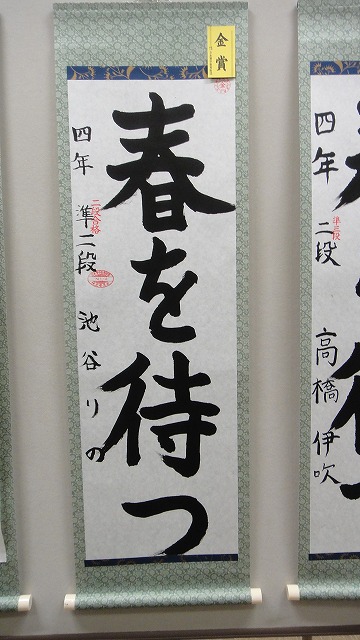 金賞
春を待つ
二段合格
四年 準二段 池谷りの
準三段
四年 二段 高橋伊吹